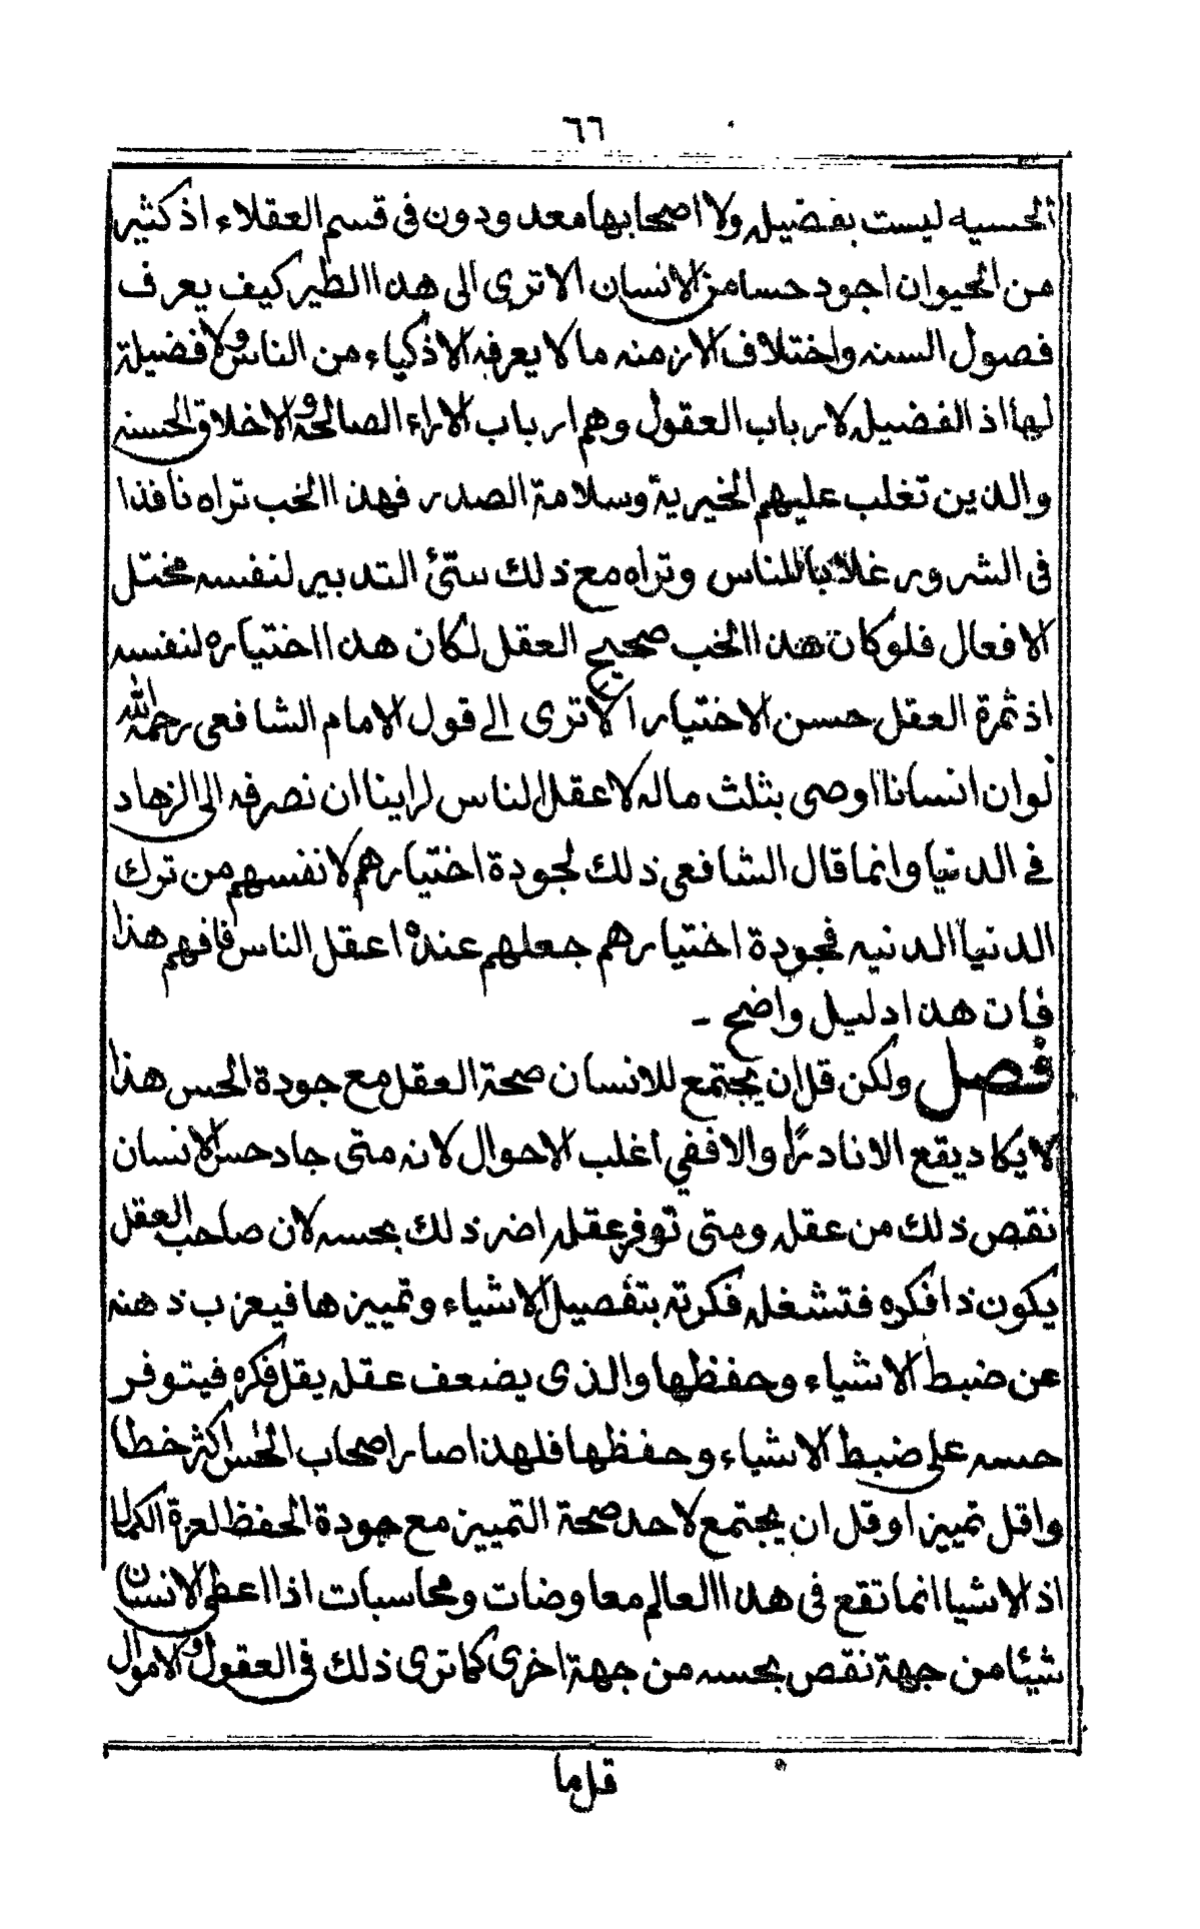 ٦٦
الحسيه ليست بفضيله ولا اصحابها معدودون فى قسم العقلاء اذ كثير
من الحيوان اجود حسا من الانسان الا ترى الى هذا الطير كيف يعرف
فصول السنه واختلاف الازمنه ما لا يعرفه الاذكياء من الناس ولا فضيلة
لها اذ الفضيله لارباب العقول وهم ارباب الاراء الصالحة والاخلاق الحسنه
والذين تغلب عليهم الخيرية وسلامة الصدر فهذا الخب تراه نافذا
فى الشرور غلابا للناس وتراه مع ذلك سيئ التدبير لنفسه مختل
الافعال فلو كان هذا الخب صحيح العقل لكان هذا اختياره لنفسه
اذ ثمرة العقل حسن الاختيار الا ترى الے قول الامام الشافعى رحمه الله
لو ان انسانا اوصى بثلث ماله لاعقل الناس لراينا ان نصرفه الى الزهاد
فے الدنيا وانما قال الشافعى ذلك لجودة اختيارهم لانفسهم من ترك
الدنيا الدنيه فجودة اختيارهم جعلهم عنده اعقل الناس فافهم هذا
فان هذا دليل واضح -
فصل ولكن قل ان يجتمع للانسان صحة العقل مع جودة الحس هذا
لا يكاد يقع الا نادرًا والا ففي اغلب الاحوال لانه متى جاد حس الانسان
نقص ذلك من عقله ومتى توفر عقله اضر ذلك بحسه لان صاحب العقل
يكون ذا فكره فتشغله فكرته بتفصيل الاشياء وتمييزها فيعزب ذهنه
عن ضبط الاشياء وحفظها والذى يضعف عقله يقل فكره فيتوفر
حسه على ضبط الاشياء وحفظها فلهذا صار اصحاب الحس اكثر خطا
واقل تمييزا وقل ان يجتمع لاحد صحة التمييز مع جودة الحفظ لعزة الكمال
اذ الاشيا انما تقع فى هذا العالم معاوضات ومحاسبات اذا اعطى الانسان
شيئا من جهة نقص بحسه من جهة اخرى كما ترى ذلك فى العقول والاموال
قل ما